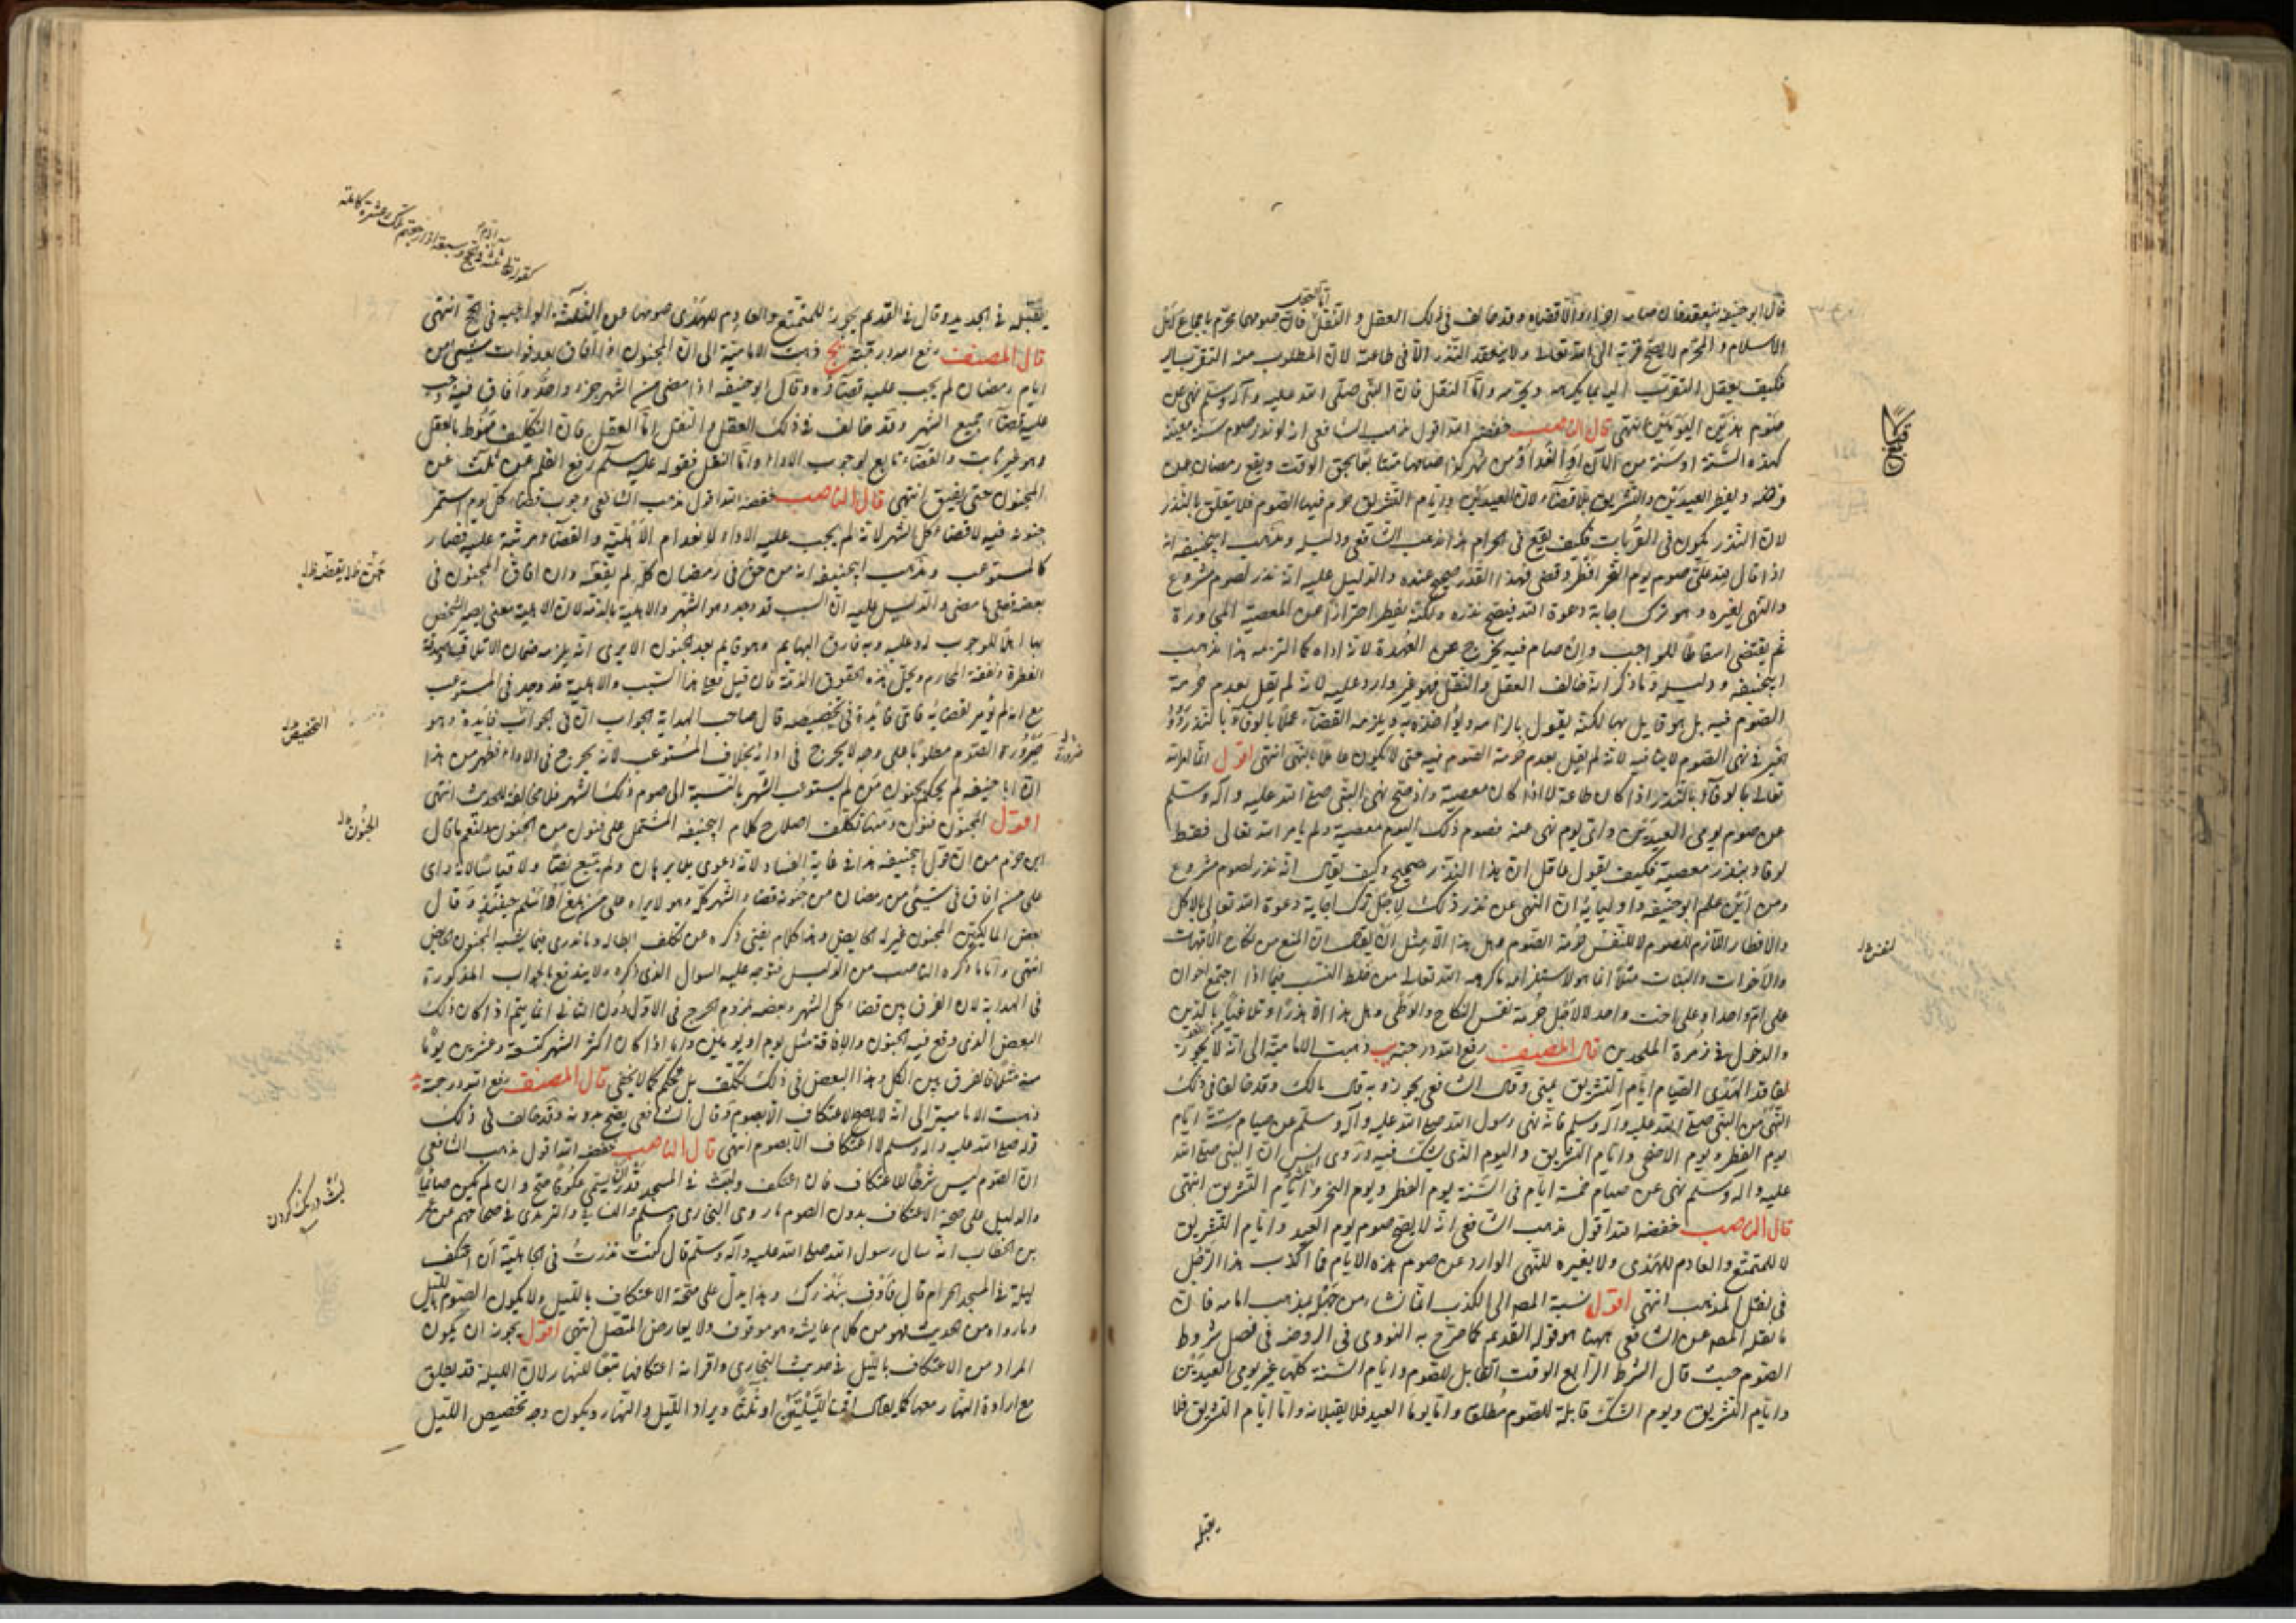 قال ابو حنيفة ينعقد فان صامه اجزاه والا قضاه وقد خالف في ذلك العقل و النقل فان صومها محرم باجماع اهل
اما العقل
الاسلام و المحرم لا يصح قربة الى الله تعالى ولا ينعقد النذر الا في طاعة لان المطلوب منه التقرب اليه
فكيف يعقل التقرب اليه بما يكرهه ويحرمه واما النقل فان النبي صلى الله عليه وآله وسلم نهى عن
صوم هذين اليومين انتهى قال الناصب خفضه الله اقول مذهب الشافعي انه لو نذر صوم سنة معينة
كهذه السنة او سنة من الآن او الغد او من شهر كذا صامها متتابعا بحق الوقت ويقع رمضان عن
فرضه ويفطر العيدين والتشريق بلا قضاء لان العيدين وايام التشريق حرم فيها الصوم فلا يتعلق بالنذر
لان النذر يكون في القربات فكيف يقع في الحرام هذا مذهب الشافعي ودليله ومذهب ابيحنيفه انه
اذا قال لله علي صوم يوم النحر افطر وقضى فهذا النذر صحيح عنده والدليل عليه انه نذر لصوم مشروع
والنهي لغيره وهو ترك اجابة دعوة الله فيصح نذره ولكنه يفطر احترازا عن المعصية المجاورة
ثم يقتضى اسقاطا للواجب وان صام فيه يخرج عن العهدة لانه اداه كما التزمه هذا مذهب
ابيحنيفه ودليله وما ذكر انه خالف العقل والنقل فهو غير وارد عليه لانه لم يقل بعدم حرمة
الصوم فيه بل هو قايل بها لكنه يقول بالزامه ويلزمه القضاء عملا بالوفاء بالنذر
الخبر في نهي الصوم لا ينافيه لانه لم يقل بعدم حرمة الصوم فيه حتى لا يكون عاملا بالنهي انتهى اقول انما امر الله
تعالى بالوفاء بالنذر اذا كان طاعة لا اذا كان معصية واذ صح نهي النبي صلى الله عليه وآله وسلم
عن صوم يومي العيدين واي يوم نهى عنه فصوم ذلك اليوم معصية ولم يامر الله تعالى قط
بوفاء بنذر معصية فكيف يقول عاقل ان هذا النذر صحيح وكيف يقال انه نذر لصوم مشروع
ومن اين علم ابو حنيفه واولياؤه ان النهي عن نذر ذلك لاجل ترك اجابة دعوة الله تعالى بالاكل
والافطار اللازم للصوم لا لنفس حرمة الصوم وهل هذا الا مثل ان يقال ان المنع من نكاح الامهات
والاخوات والبنات مثلا انما هو لاستلزامه ما كرهه الله تعالى من خلط النسب فيما اذا اجتمع اخوان
على ام واحدة او على اخت واحدة لا لاجل حرمة نفس النكاح والوطي وهل هذا الا هذرا وتلاعبا بالدين
والدخول في زمرة الملحدين قال المصنف رفع الله درجته يب ذهبت الامامية الى انه لا يجوز
لفاقد الهدي الصيام ايام التشريق بمنى وقال الشافعي يجوز وبه قال مالك وقد خالفا في ذلك
النهي من النبي صلى الله عليه وآله وسلم فانه نهى رسول الله صلى الله عليه وآله وسلم عن صيام ستة ايام
يوم الفطر ويوم الاضحى وايام التشريق واليوم الذي يشك فيه وروى انس ان النبي صلى الله
عليه وآله وسلم نهى عن صيام خمسة ايام في السنة يوم الفطر ويوم النحر وايام التشريق انتهى
قال الناصب خفضه الله اقول مذهب الشافعي انه لا يصح صوم يوم العيد وايام التشريق
لا للمتمتع والعادم للهدي ولا لغيره للنهي الوارد عن صوم هذه الايام فما اكذب هذا الرجل
في نقل المذهب انتهى اقول نسبة المصه الى الكذب انما نشاء من جهله بمذهب امامه فان
ما نقله المصه عن الشافعي ههنا هو قوله القديم كما صرح به النووي في الروضه في فصل شروط
الصوم حيث قال الشرط الرابع الوقت القابل للصوم وايام السنة كلها غير يومي العيدين
وايام التشريق ويوم الشك قابلة للصوم مطلقا واما يوما العيد فلا يقبلانه واما ايام التشريق فلا
يقبله
لنفس
يقبله في الجديد وقال في القديم يجوز للمتمتع والعادم للهدي صومها عن الثلاثة الواجبة في الحج انتهى
كقوله تعالى ثلثة في الحج وسبعة اذا رجعتم تلك عشرة كاملة
قال المصنف رفع الله درجته يج ذهبت الامامية الى ان المجنون اذا افاق بعد فوات شيء من
ايام رمضان لم يجب عليه قضاؤه وقال ابو حنيفه اذا مضى من الشهر جزء واحد وافاق فيه وجب
عليه قضاء جميع الشهر وقد خالف في ذلك العقل والنقل اما العقل فان التكليف منوط بالعقل
وهو غير ثابت والقضاء تابع لوجوب الاداء واما النقل فقوله عليه السلم رفع القلم عن ثلث عن
المجنون حتى يفيق انتهى قال الناصب خفضه الله اقول مذهب الشافعي وجوب قضاء كل يوم استمر
جنونه فيه لا قضاء كل الشهر لانه لم يجب عليه الاداء لانعدام الاهلية والقضاء مرتب عليه فصار
كالمستوعب ومذهب ابيحنيفه انه من جن في رمضان كله لم يقضه وان افاق المجنون في
جن فلا يقضه
بعضه قضى ما مضى والدليل عليه ان السبب قد وجد وهو الشهر والاهلية بالذمة لان الاهلية معنى يصير الشخص
بها اهلا للوجوب له وعليه وبه فارق البهايم وهو قايم بعد الجنون الا يرى انه يلزمه ضمان الاتلاف وصدقة
الفطرة ونفقة المحارم ومحل هذه الحقوق الذمة فان قيل فعلى هذا السبب والاهلية قد وجد في المستوعب
مع انه لم يؤمر بقضائه فاي فائدة في تخصيصه قال صاحب الهداية الجواب ان في الجواب فائدة وهو
التخصيص
صيرورة الصوم مطلوبا على وجه لا يحرج في ادائه بخلاف المستوعب لانه يحرج في الاداء فظهر من هذا
ان ابا حنيفه لم يحكم بجنون من لم يستوعب الشهر بالنسبة الى صوم ذلك الشهر فلا مخالفة للحديث انتهى
اقول الجنون فنون ومنها تكلف اصلاح كلام ابيحنيفه المشتمل على فنون من الجنون ولنعم ما قال
الجنون
ابن حزم من ان قول ابيحنيفه هذا في غاية الفساد لانه دعوى بلا برهان ولم يتبع نصا ولا قياسا لانه راى
على من افاق في شيء من رمضان من جنونه قضاء الشهر كله وهو لا يراه على من بلغ او اسلم حينئذ وقال
بعض المالكيين المجنون بمنزلة الحايض وهذا كلام يغني ذكره عن تكلف ابطاله وما ندري فيما يشبه المجنون الحايض
انتهى واما ما ذكره الناصب من الدليل فتوجه عليه السؤال الذي ذكره ولا يندفع بالجواب المذكورة
في الهداية لان الفرق بين قضاء كل الشهر وبعضه بلزوم الحرج في الاول دون الثاني انما يتم اذا كان ذلك
البعض الذي وقع فيه الجنون والافاقة مثل يوم او يومين واما اذا كان اكثر الشهر كتسعة وعشرين يوما
منه مثلا فالفرق بين الكل وهذا البعض في ذلك تكلف بل تحكم كما لا يخفى قال المصنف رفع الله درجته يد
ذهبت الامامية الى انه لا يصح الاعتكاف الا بصوم وقال الشافعي يصح بدونه وقد خالف في ذلك
قوله صلى الله عليه وآله وسلم لا اعتكاف الا بصوم انتهى قال الناصب خفضه الله اقول مذهب الشافعي
ان الصوم ليس شرطا للاعتكاف فان اعتكف ولبث في المسجد قدرا يسمى عكوفا صح وان لم يكن صائما
لبث درنك كردن
والدليل على صحة الاعتكاف بدون الصوم ما روى البخاري ومسلم والنسائي والترمذي في صحاحهم من عمر
بن الخطاب انه سال رسول الله صلى الله عليه وآله وسلم قال كنت نذرت في الجاهلية ان اعتكف
ليلة في المسجد الحرام قال فاوف بنذرك وهذا يدل على صحة الاعتكاف بالليل ولا يكون الصوم بالليل
وما رواه من الحديث فهو من كلام عايشه وهو موقوف ولا يعارض المتصل انتهى اقول يجوز ان يكون
المراد من الاعتكاف بالليل في حديث البخاري واقرانه اعتكافها تبعا للنهار لان الليلة قد يطلق
مع ارادة النهار معها كما يقال اقمنا ليلتين او ثلثا ويراد الليل والنهار ويكون وجه تخصيص الليل